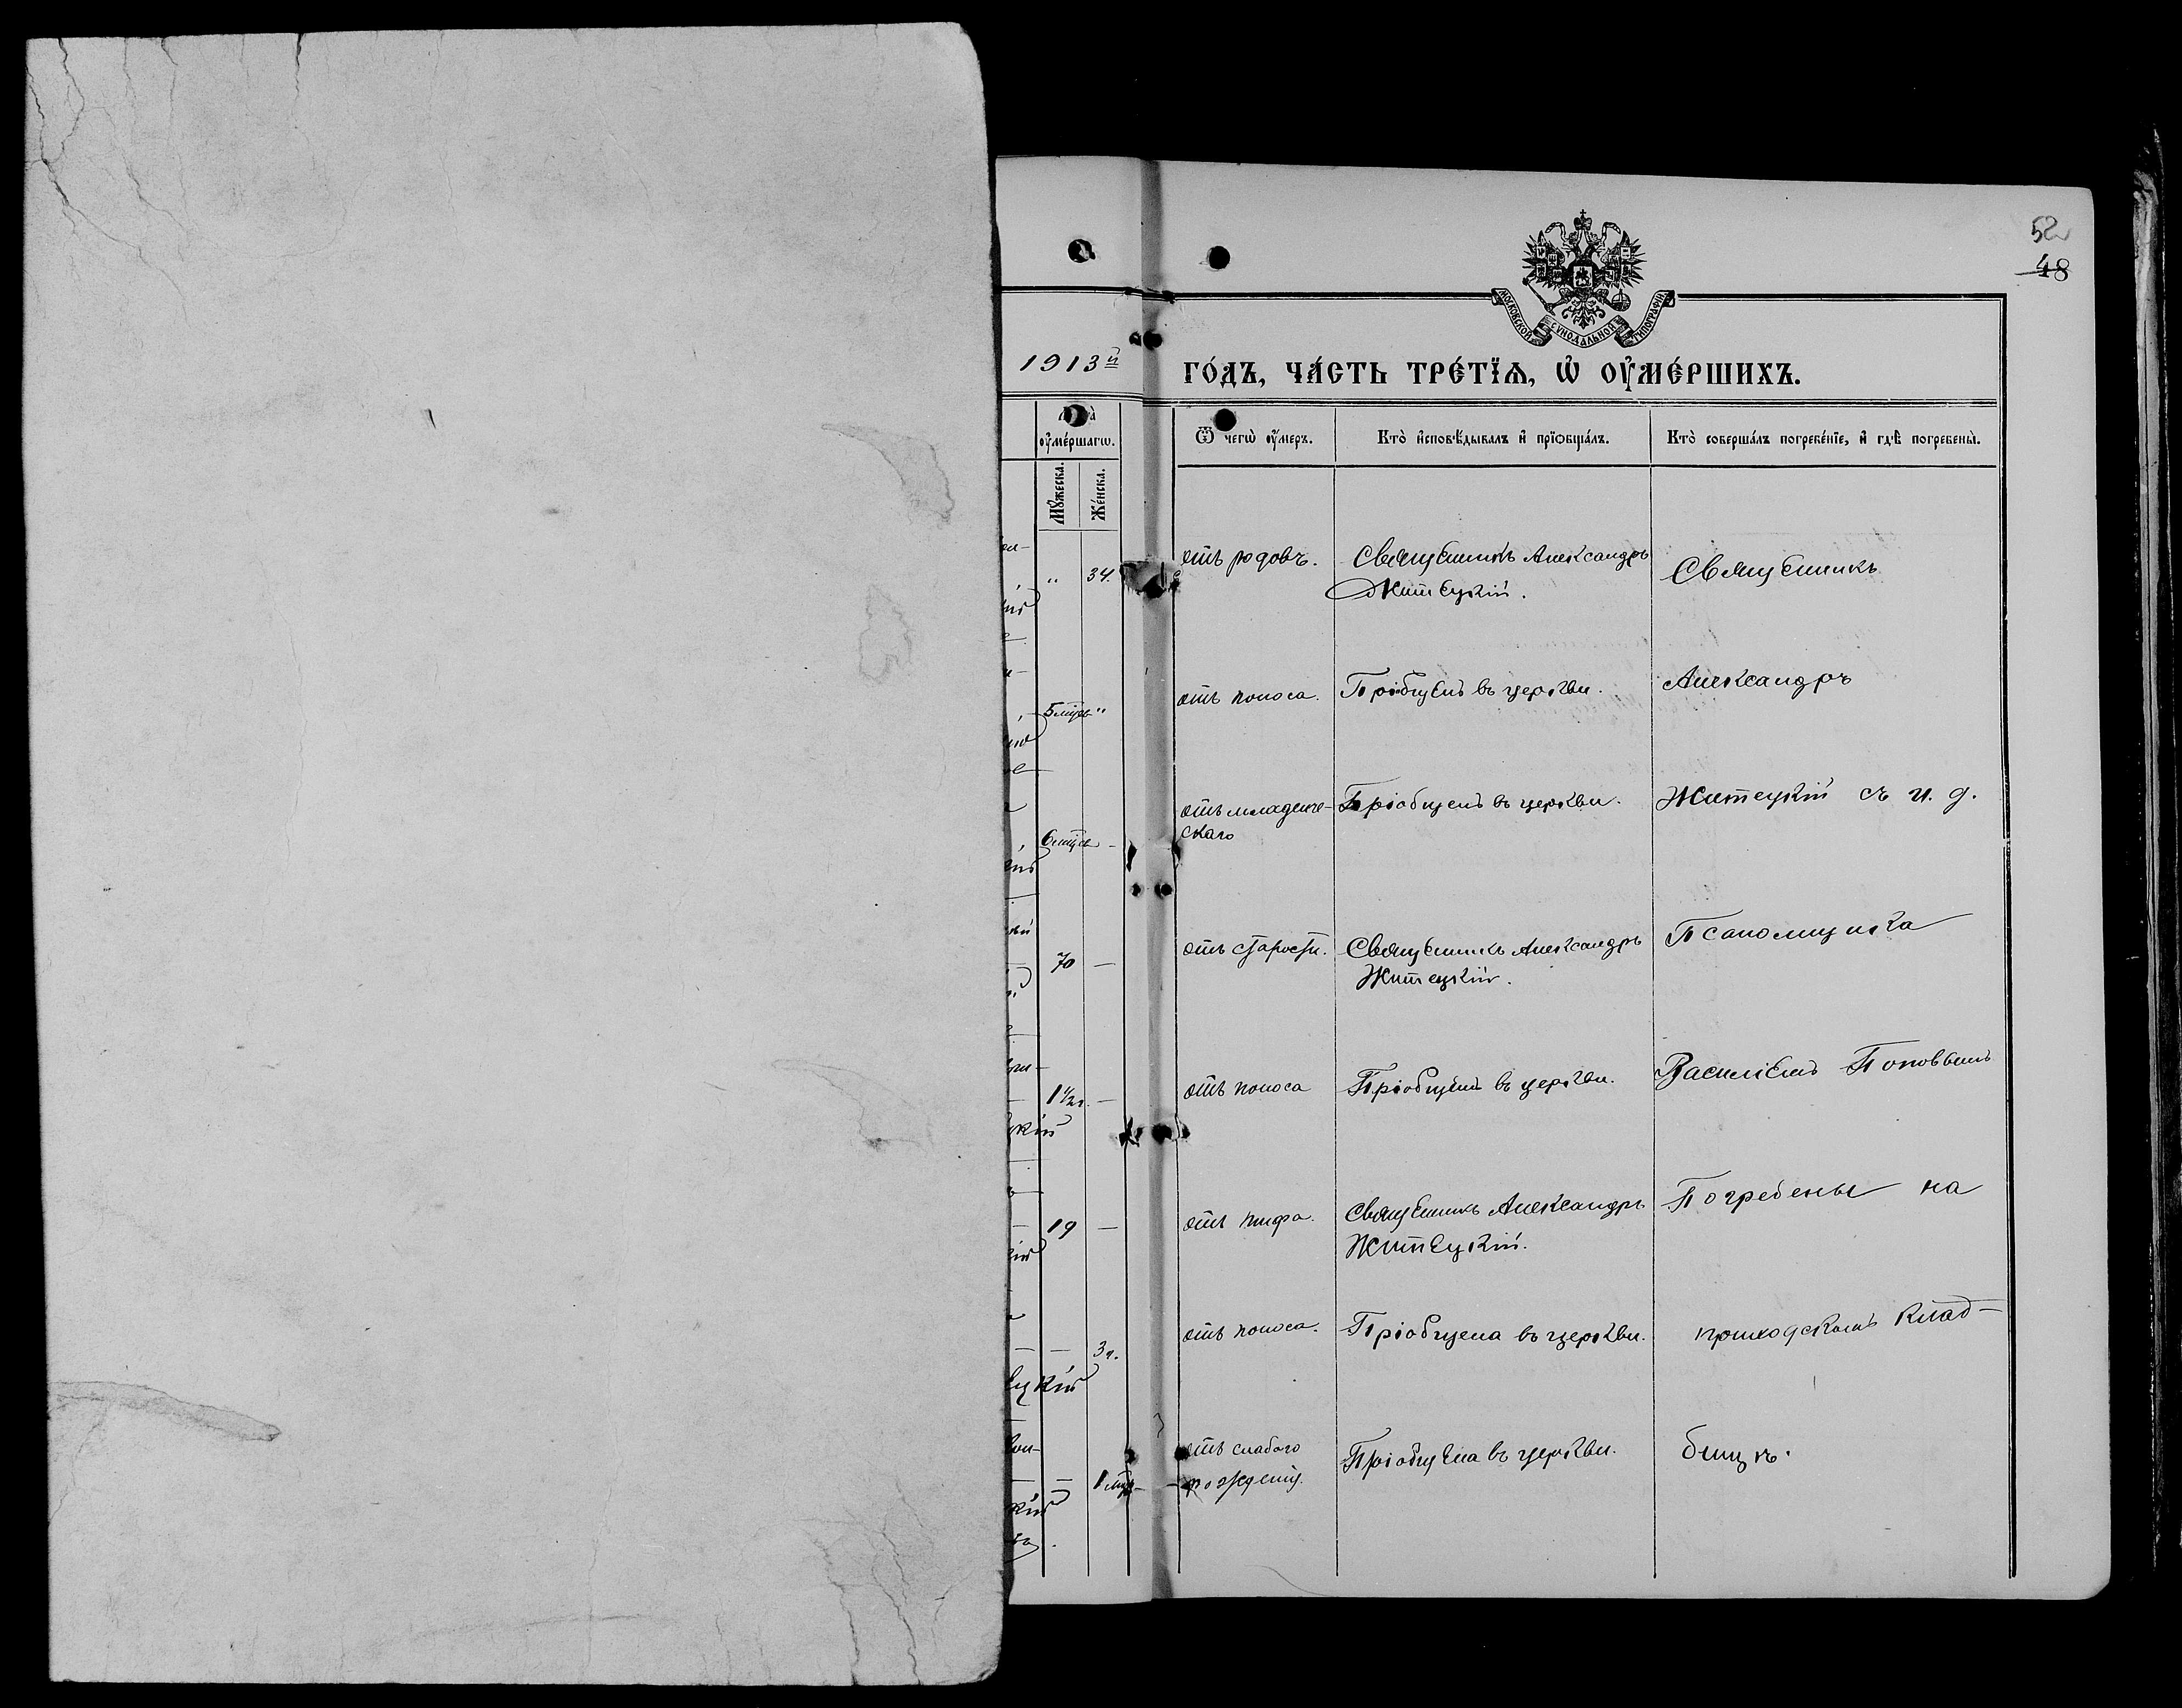 52
48
МОСКОВСКОЙ СѴНОДАЛЬНОЙ ТИПОГРАФІИ
1913й
го́дъ, ча́сть тре́тїѧ, ѡ҆ ᲂу҆ме́ршихъ.
ᲂу҆ме́ршагѡ.
Мꙋ́жеска.
Же́нска.
Ѿ чегѡ̀ ᲂу҆́меръ.
Кто̀ и҆сповѣ́дывалъ и҆ прїѡбща́лъ.
Кто̀ соверша́лъ погребе́нїе, и҆ гдѣ̀ погребены̀.
" 34.
отъ родовъ.
Священникъ Александръ
Житецкій.
Священникъ
5 мцев "
отъ поноса.
Пріобщенъ въ церкви.
Александръ
6 мцев -
отъ младенче-
скаго
Пріобщенъ въ церкви.
Житецкій съ и. д.
70 -
отъ старости.
Священникъ Александръ
Житецкій.
Псаломщика
1 1/2 г. -
отъ поноса
Пріобщенъ въ церкви.
Василіемъ Поповымъ
19 -
отъ тифа.
Священникъ Александръ
Житецкій.
Погребены на
- 3 г.
цкій
отъ поноса.
Пріобщена въ церкви.
приходскомъ клад-
- 1 мцъ
отъ слабого
рожденія.
Пріобщена въ церкви.
бищѣ.